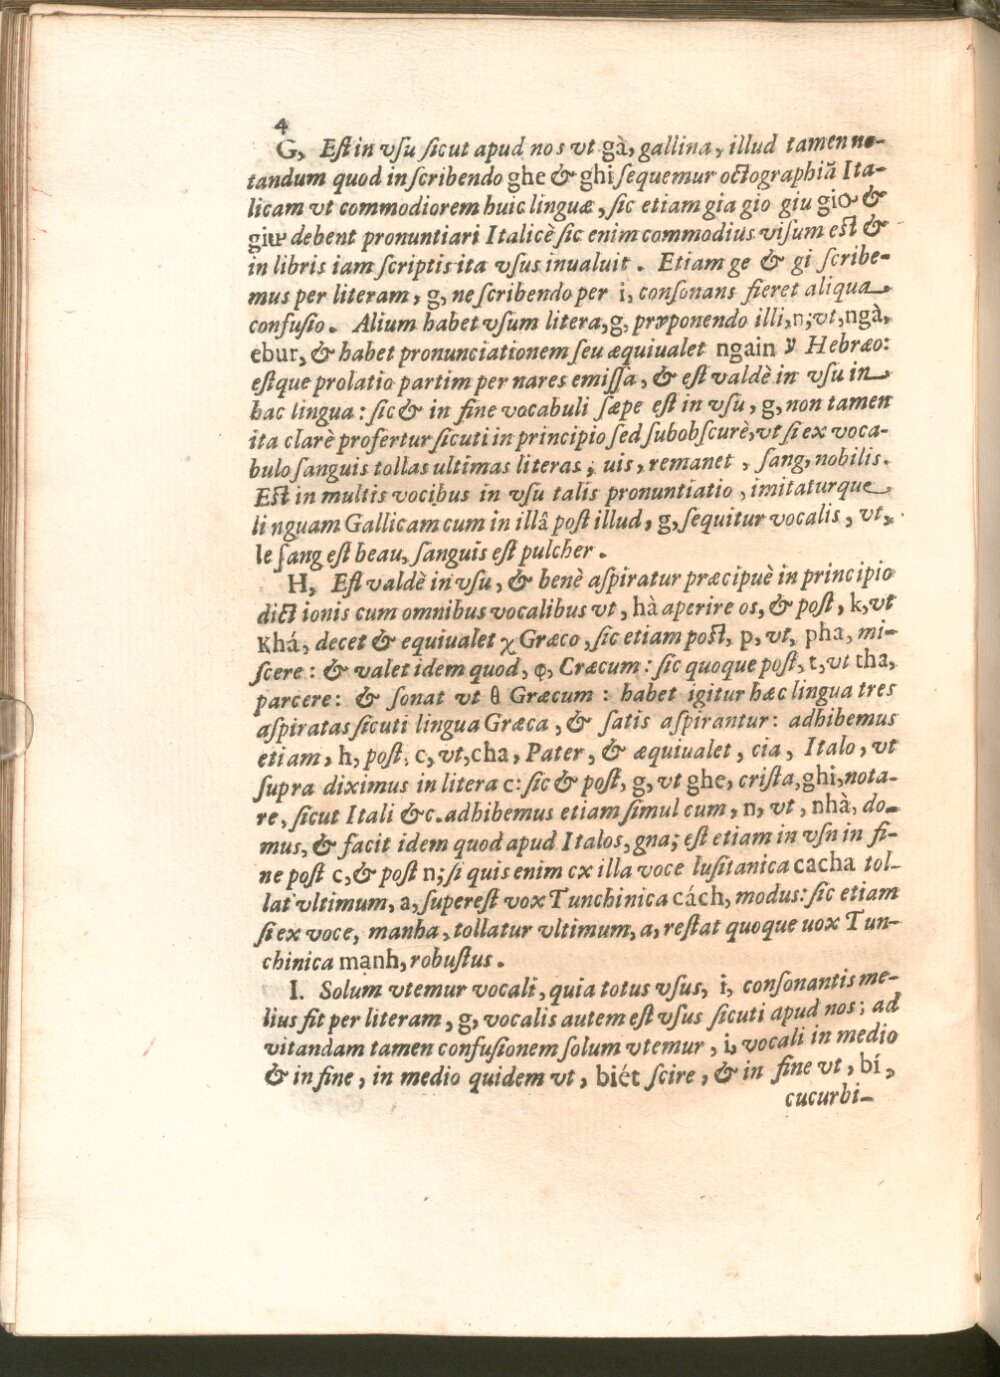 4
G, Eſt in vſu ſicut apud nos vt gà, gallina, illud tamen no-
tandum quod in ſcribendo ghe & ghi ſequemur octographiã Ita-
licam vt commodiorem huic linguæ, ſic etiam gia gio giu giơ &
giư debent pronuntiari Italicè ſic enim commodius viſum eſt &
in libris iam ſcriptis ita vſus inualuit. Etiam ge & gi ſcribe-
mus per literam, g, ne ſcribendo per i, conſonans fieret aliqua
confuſio. Alium habet vſum litera, g, præponendo illi, n; vt, ngà,
ebur, & habet pronunciationem ſeu æquiualet ngain ע Hebræo:
eſtque prolatio partim per nares emiſſa, & eſt valdè in vſu in
hac lingua: ſic & in fine vocabuli ſæpe eſt in vſu, g, non tamen
ita clarè profertur ſicuti in principio ſed ſubobſcurè, vt ſi ex voca-
bulo ſanguis tollas ultimas literas, uis, remanet, ſang, nobilis.
Eſt in multis vocibus in vſu talis pronuntiatio, imitaturque
linguam Gallicam cum in illâ poſt illud, g, ſequitur vocalis, vt,
le ſang eſt beau, ſanguis eſt pulcher.
H, Eſt valdè in vſu, & benè aſpiratur præcipuè in principio
dictionis cum omnibus vocalibus vt, hà aperire os, & poſt, k, vt
Khá, decet & equiualet χ Græco, ſic etiam poſt, p, vt, pha, mi-
ſcere: & valet idem quod, φ, Cræcum: ſic quoque poſt, t, vt tha,
parcere: & ſonat vt θ Græcum: habet igitur hæc lingua tres
aſpiratas ſicuti lingua Græca, & ſatis aſpirantur: adhibemus
etiam, h, poſt, c, vt, cha, Pater, & æquiualet, cia, Italo, vt
ſupra diximus in litera c: ſic & poſt, g, vt ghe, criſta, ghi, nota-
re, ſicut Itali &c. adhibemus etiam ſimul cum, n, vt, nhà, do-
mus, & facit idem quod apud Italos, gna; eſt etiam in vſn in fi-
ne poſt c, & poſt n; ſi quis enim cx illa voce luſitanica cacha tol-
lat vltimum, a, ſupereſt vox Tunchinica cách, modus: ſic etiam
ſi ex voce, manha, tollatur vltimum, a, reſtat quoque uox Tun-
chinica mạnh, robuſtus.
I. Solum vtemur vocali, quia totus vſus, i, conſonantis me-
lius fit per literam, g, vocalis autem eſt vſus ſicuti apud nos; ad
vitandam tamen confuſionem ſolum vtemur, i, vocali in medio
& in fine, in medio quidem vt, biét ſcire, & in fine vt, bí,
cucurbi-